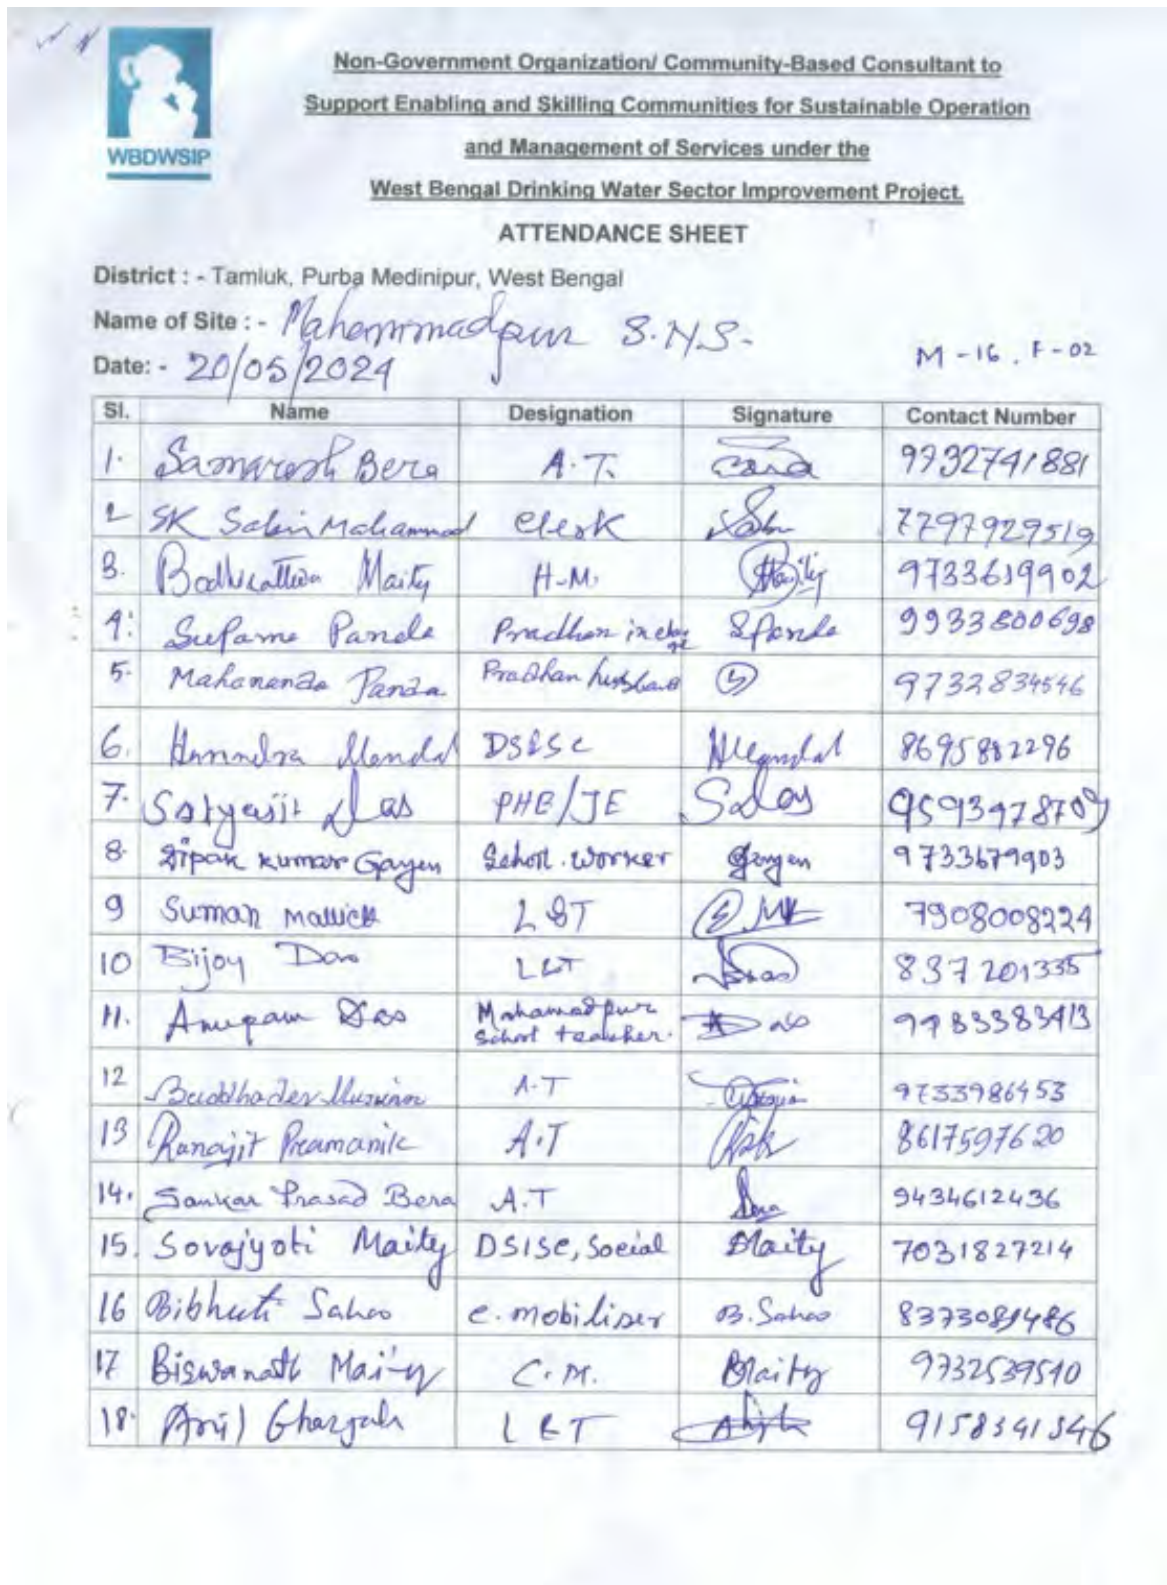 WBDWSIP
Non-Government Organization/ Community-Based Consultant to
Support Enabling and Skilling Communities for Sustainable Operation
and Management of Services under the
West Bengal Drinking Water Sector Improvement Project.
ATTENDANCE SHEET
District : - Tamluk, Purba Medinipur, West Bengal
Name of Site : - Mahammadpur S.N.S.
Date: - 20/05/2024
M - 16 . F - 02
Sl. Name Designation Signature Contact Number
1. Samaresh Bera A.T. 9932741881
2 SK Sabir Mahammad Clerk 7797929519
3. Bodhisattwa Maity H.M. Maity 9733619902
4. Suparna Panda Pradhan in charge SPanda 9933800698
5. Mahananda Panda Pradhan husband 9732834546
6. Mondal DSISC Mondal 8695882296
7. Satyajit Das PHE/JE SDas 9593978709
8. Dipak Kumar Gayen School. Worker Gayen 9733679903
9 Suman Mallick L&T 7908008224
10 Bijoy Das L&T Das 837201335
11. Anupam Das Mahamadpur School teacher. Das 9983383413
12 A.T 9733986453
13 Ranajit Pramanik A.T 8617597620
14. Sankar Prasad Bera A.T Bera 9434612436
15. Sovajyoti Maity DSISC, Social SMaity 7031827214
16 Bibhuti Sahoo C. mobiliser B. Sahoo 8373089486
17 Biswanath Maity C.M. BMaity 9732539510
18. L&T 9158341346